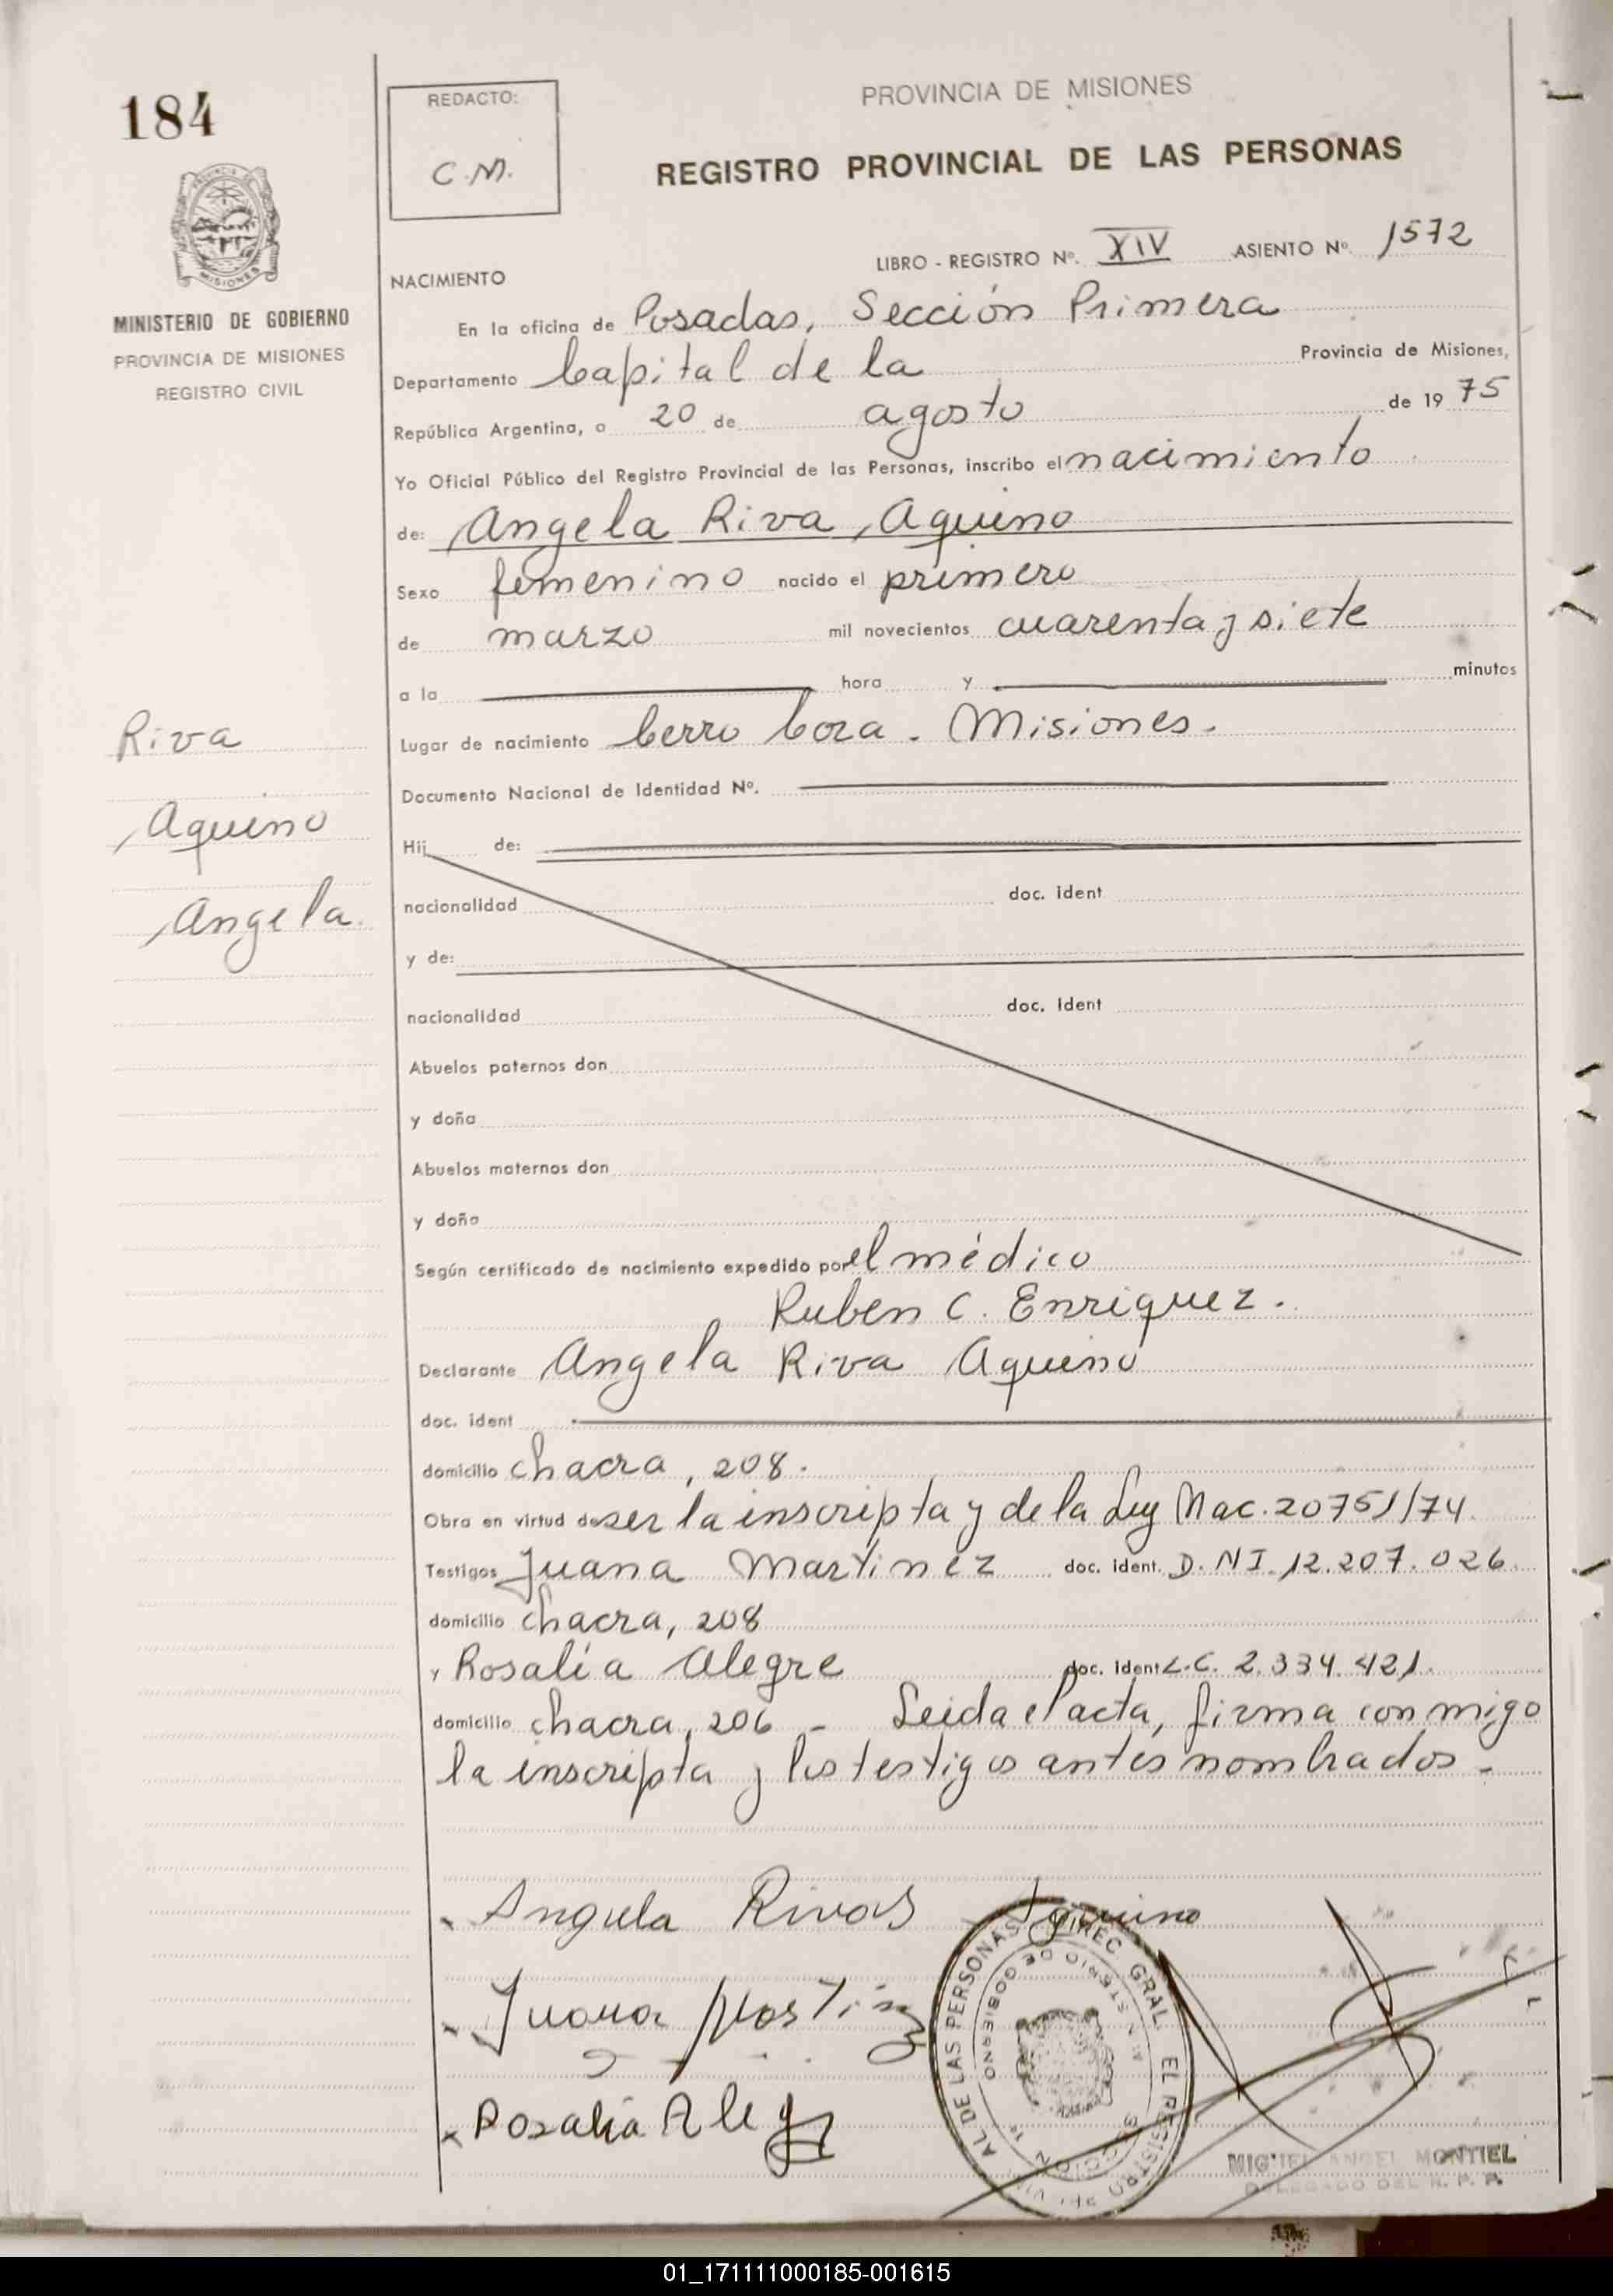 184
PROVINCIA DE MISIONES
MINISTERIO DE GOBIERNO
PROVINCIA DE MISIONES
REGISTRO CIVIL
Riva
Aquino
Angela
REDACTO:
C.M.
PROVINCIA DE MISIONES
REGISTRO PROVINCIAL DE LAS PERSONAS
LIBRO - REGISTRO Nº. XIV ASIENTO Nº. 1572
NACIMIENTO
En la oficina de Posadas, Sección Primera
Departamento Capital de la Provincia de Misiones,
República Argentina, a 20 de agosto de 19 75
Yo Oficial Público del Registro Provincial de las Personas, inscribo el nacimiento
de: Angela Riva Aquino
Sexo femenino nacido el primero
de marzo mil novecientos cuarenta y siete
a la hora y minutos
Lugar de nacimiento Cerro Cora. Misiones.
Documento Nacional de Identidad Nº.
Hij de:
nacionalidad doc. ident
y de:
nacionalidad doc. ident
Abuelos paternos don
y doña
Abuelos maternos don
y doña
Según certificado de nacimiento expedido por el médico
Ruben C. Enriquez.
Declarante Angela Riva Aquino
doc. ident
domicilio chacra, 208.
Obra en virtud de ser la inscripta y de la Ley Nac. 20751/74.
Testigos Juana Martínez doc. ident. D.NI. 12.207.026
domicilio chacra, 208
y Rosalía Alegre doc. ident L.C. 2.334.421.
domicilio chacra, 206 - Leida el acta, firma conmigo
la inscripta y los testigos antes nombrados.-
Angula Rivas Aquino
Juana Martinz
Rosalia Aleg
DIREC. GRAL. EL REGISTRO AL DE LAS PERSONAS
MINISTERIO DE GOBIERNO
MIGUEL ANGEL MONTIEL
DELEGADO DEL R. P. P.
01_171111000185-001615